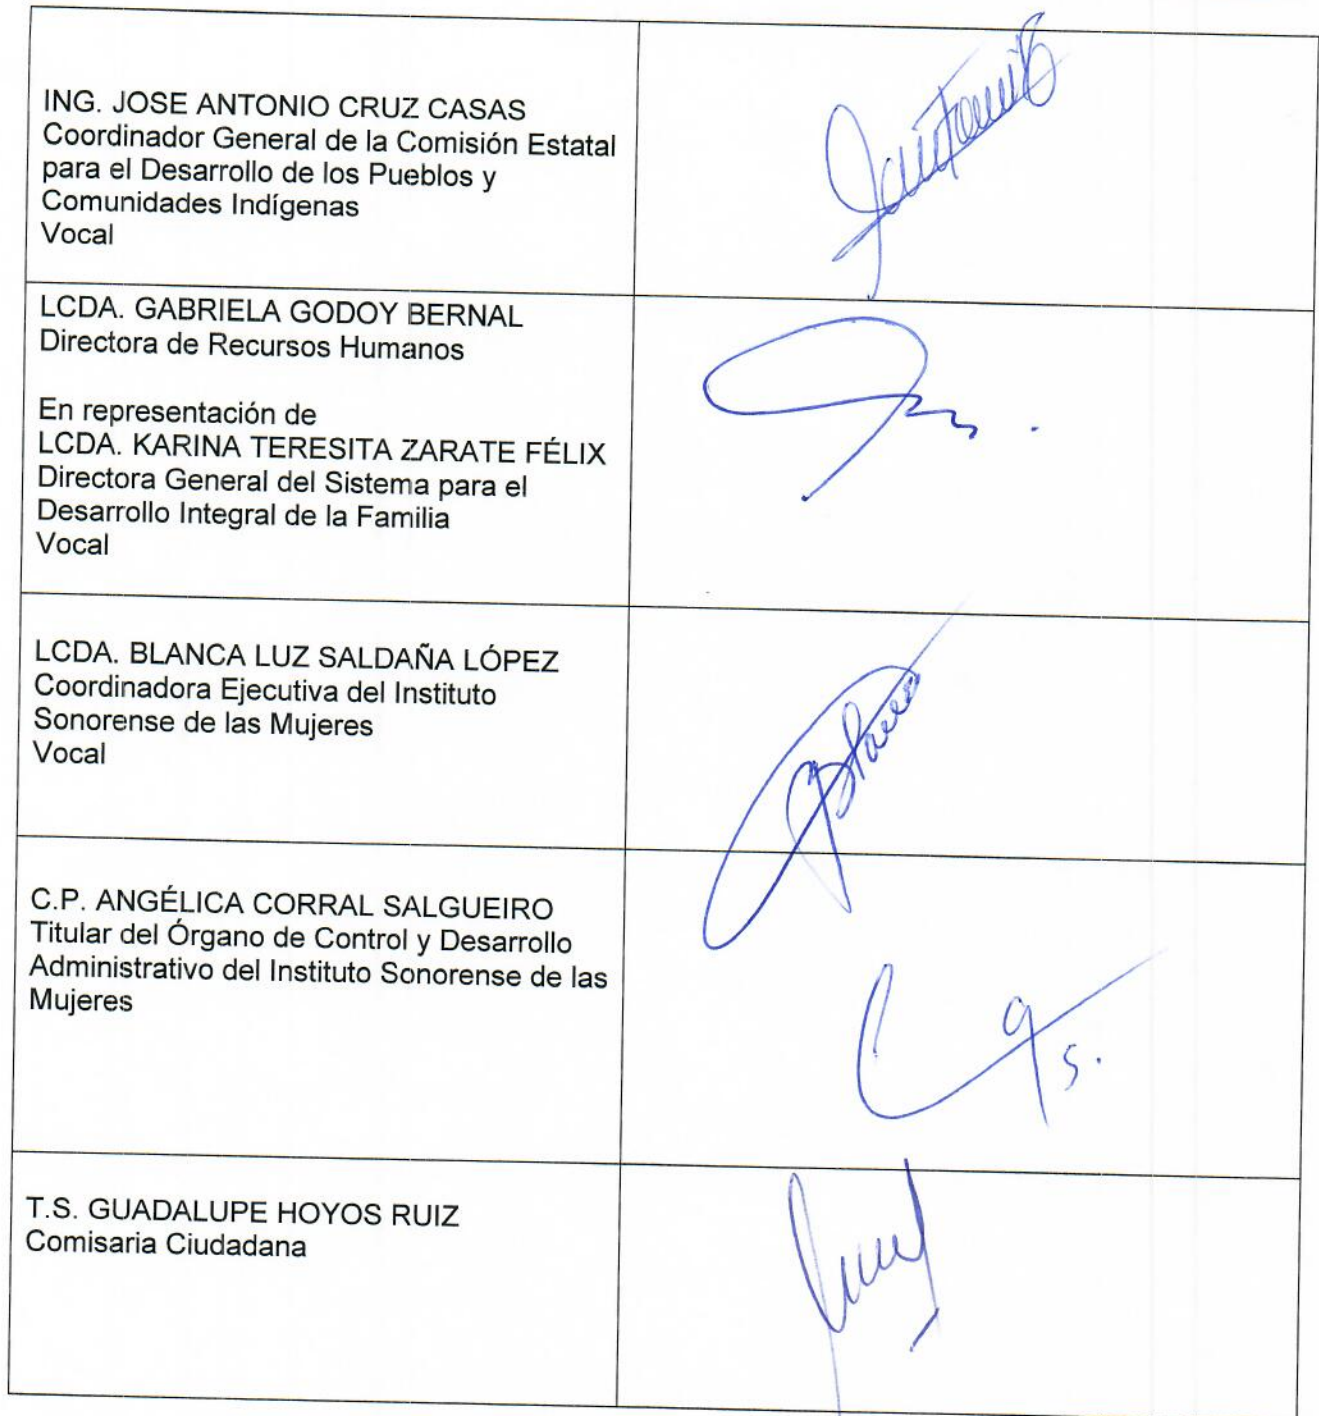 ING. JOSE ANTONIO CRUZ CASAS
Coordinador General de la Comisión Estatal
para el Desarrollo de los Pueblos y
Comunidades Indígenas
Vocal
LCDA. GABRIELA GODOY BERNAL
Directora de Recursos Humanos
En representación de
LCDA. KARINA TERESITA ZARATE FÉLIX
Directora General del Sistema para el
Desarrollo Integral de la Familia
Vocal
LCDA. BLANCA LUZ SALDAÑA LÓPEZ
Coordinadora Ejecutiva del Instituto
Sonorense de las Mujeres
Vocal
C.P. ANGÉLICA CORRAL SALGUEIRO
Titular del Órgano de Control y Desarrollo
Administrativo del Instituto Sonorense de las
Mujeres
T.S. GUADALUPE HOYOS RUIZ
Comisaria Ciudadana